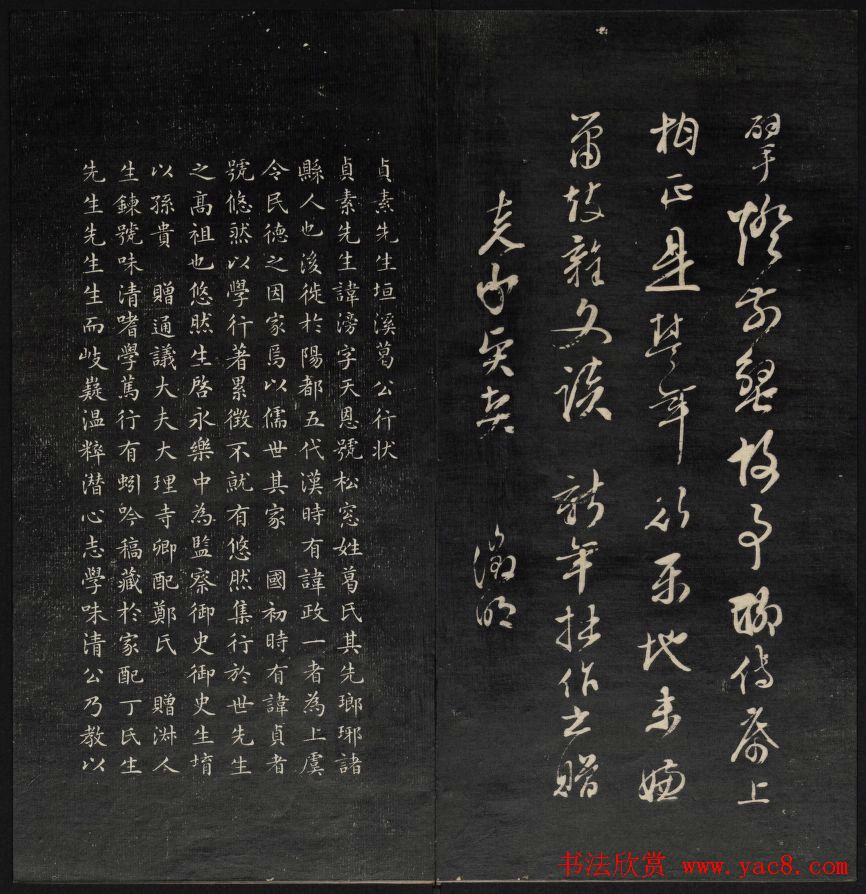 燈前兒女故事聊倚屏上
相正是芳年行樂地未嫌
簫鼓雜文談 新年拙作之贈
徵明
貞素先生垣溪葛公行状
貞素先生諱滂字天恩號松窓姓葛氏其先瑯琊諸
縣人也後徙於陽都五代漢時有諱政一者為上虞
令民德之因家焉以儒世其家 國初時有諱貞者
號悠然以學行著累徴不就有悠然集行於世先生
之高祖也悠然生啓永樂中為監察御史御史生堉
以孫貴 贈通議大夫大理寺卿配鄭氏 贈淑人
生鍊號味清嗜學篤行有蚓吟稿藏於家配丁氏生
先生先生生而岐嶷温粹潜心志學味清公乃教以
书法欣赏 www.yac8.com